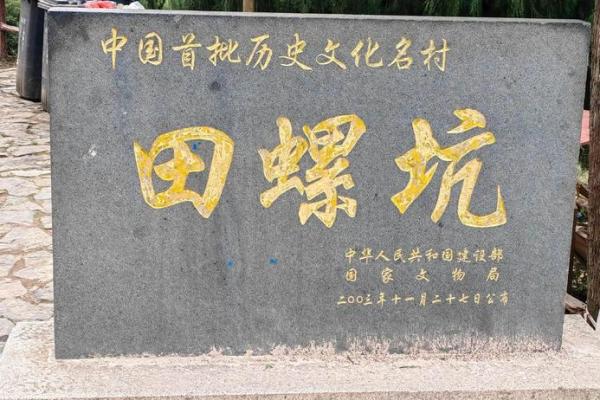 中国首批历史文化名村
田螺坑
中华人民共和国建设部
国家文物局
二00三年十一月二十七日公布